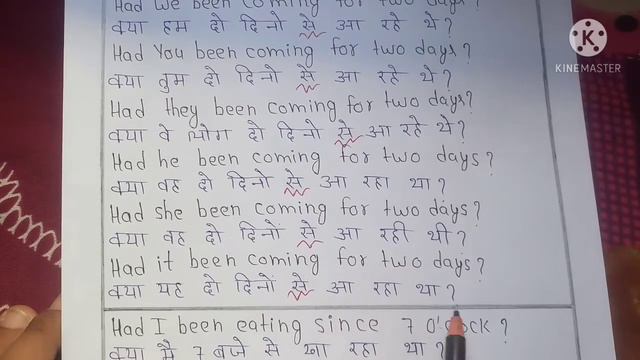 Had We been coming for two days?
क्या हम दो दिनो से आ रहे थे?
Had You been coming for two days?
क्या तुम दो दिनो से आ रहे थे?
Had they been coming for two days?
क्या वे लोग दो दिनो से आ रहे थे?
Had he been coming for two days?
क्या वह दो दिनो से आ रहा था?
Had she been coming for two days?
क्या वह दो दिनो से आ रही थी?
Had it been coming for two days?
क्या यह दो दिनों से आ रहा था?
Had I been eating since 7 O'clock?
क्या मै 7 बजे से खा रहा था?
KINEMASTER